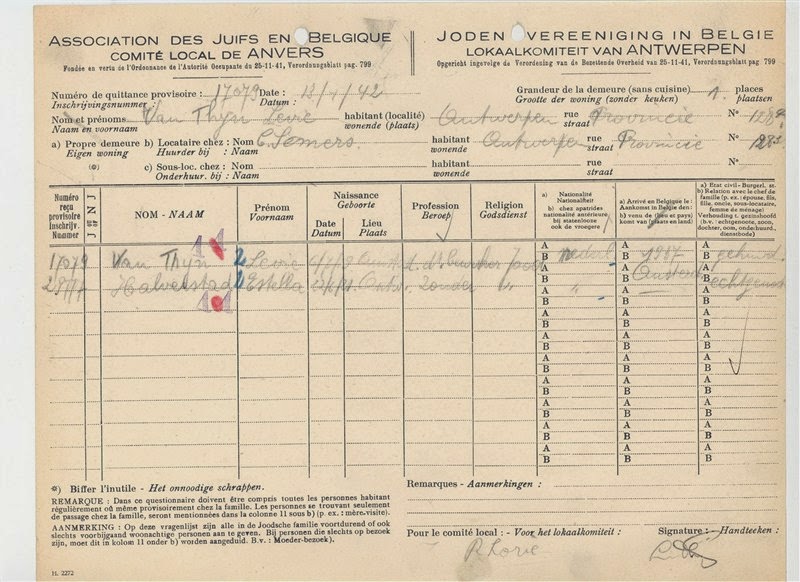 ASSOCIATION DES JUIFS EN BELGIQUE
COMITÉ LOCAL DE ANVERS
Fondée en vertu de l'Ordonnance de l'Autorité Occupante du 25-11-41, Verordnungsblatt pag. 799
JODENVEREENIGING IN BELGIE
LOKAALKOMITEIT VAN ANTWERPEN
Opgericht ingevolge de Verordening van de Bezettende Overheid van 25-11-41, Verordnungsblatt pag. 799
Numéro de quittance provisoire : 17079 Date : 13/4/42
Inschrijvingsnummer : Datum :
Grandeur de la demeure (sans cuisine) 1 places
Grootte der woning (zonder keuken) plaatsen
Nom et prénoms Van Thyn Levie habitant (localité) Antwerpen rue Provincie N°
Naam en voornaam wonende (plaats) straat
a) Propre demeure b) Locataire chez : Nom C. Somers habitant Antwerpen rue Provincie N°
Eigen woning Huurder bij : Naam wonende straat
(*) c) Sous-loc. chez : Nom habitant rue N°
Onderhuur. bij : Naam wonende straat
Numéro reçu provisoire Inschrijv. Nummer
J ou N
J of N
NOM - NAAM
Prénom Voornaam
Naissance Geboorte
Date Datum
Lieu Plaats
Profession Beroep
Religion Godsdienst
a) Nationalité Nationaliteit
b) chez apatrides nationalité antérieure bij statenlooze ook de vroegere
a) Arrivé en Belgique le : Aankomst in België den :
b) venu de (lieu et pays) komt van (plaats en land)
a) Etat civil - Burgerl. st.
b) Relation avec le chef de famille (p. ex. : épouse, fils, fille, oncle, sous-locataire, femme de ménage)
Verhouding t. gezinshoofd (b.v. : echtgenoote, zoon, dochter, oom, onderhuurd., dienstbode)
17079 Van Thyn Levie A nederl. A B A
Halverstad Estella zonder " A " B echtgenoot
A B
A B
A B
A B
A B
A B
A B
A B
*) Biffer l'inutile - Het onnoodige schrappen.
REMARQUE : Dans ce questionnaire doivent être compris toutes les personnes habitant
régulièrement où même provisoirement chez la famille. Les personnes se trouvant seulement
de passage chez la famille, seront mentionnées dans la colonne 11 sous b) (p. ex. : mère.visite).
AANMERKING : Op deze vragenlijst zijn alle in de Joodsche familie voortdurend of ook
slechts voorbijgaand woonachtige personen aan te geven. Bij personen die slechts op bezoek
zijn, moet dit in kolom 11 onder b) worden aangeduid. B.v. : Moeder-bezoek).
H. 2272
Remarques - Aanmerkingen :
Pour le comité local : - Voor het lokaalkomiteit : Signature : - Handteeken :